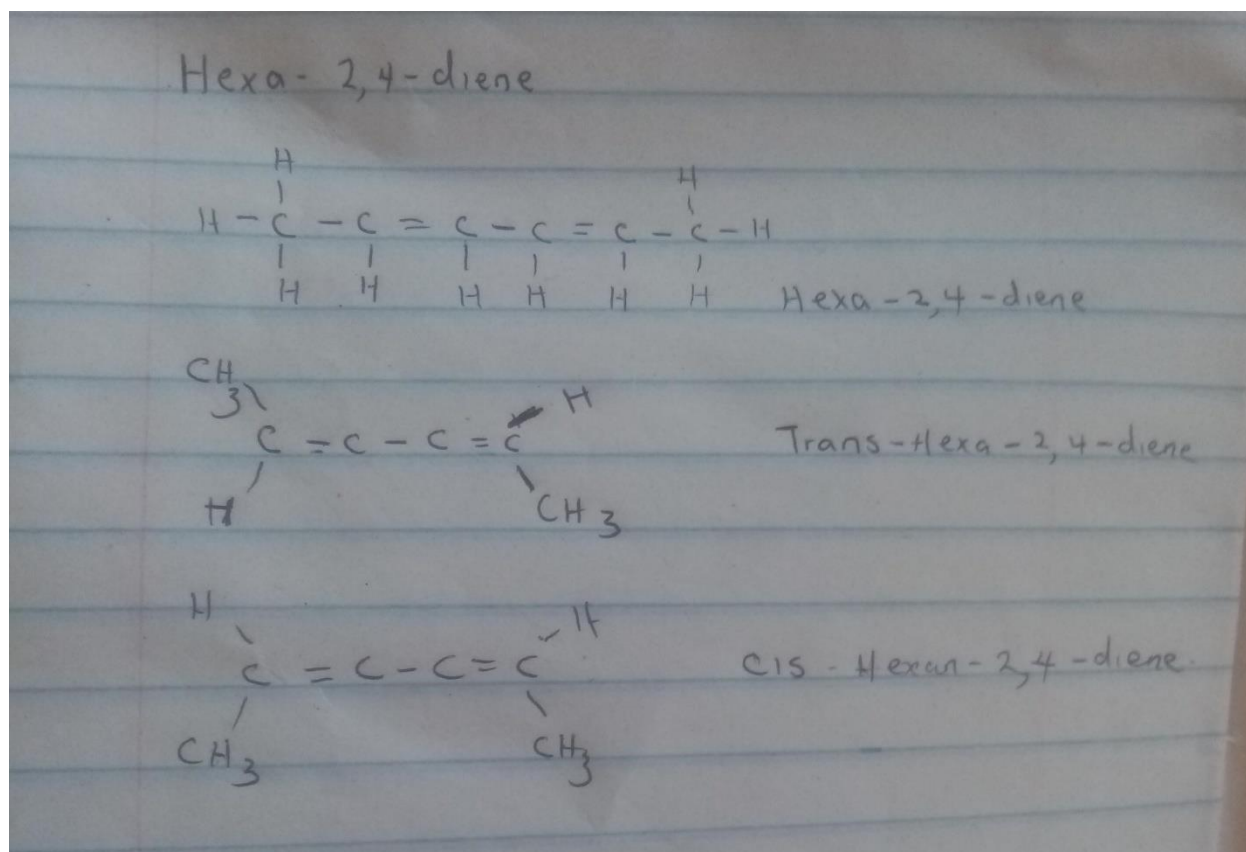 Hexa- 2,4-diene
H H
H - C - C = C - C = C - C - H
H H H H H H Hexa-2,4-diene
CH3 H
C = C - C = C Trans-Hexa-2,4-diene
H CH3
H H
C = C - C = C Cis-Hexan-2,4-diene.
CH3 CH3